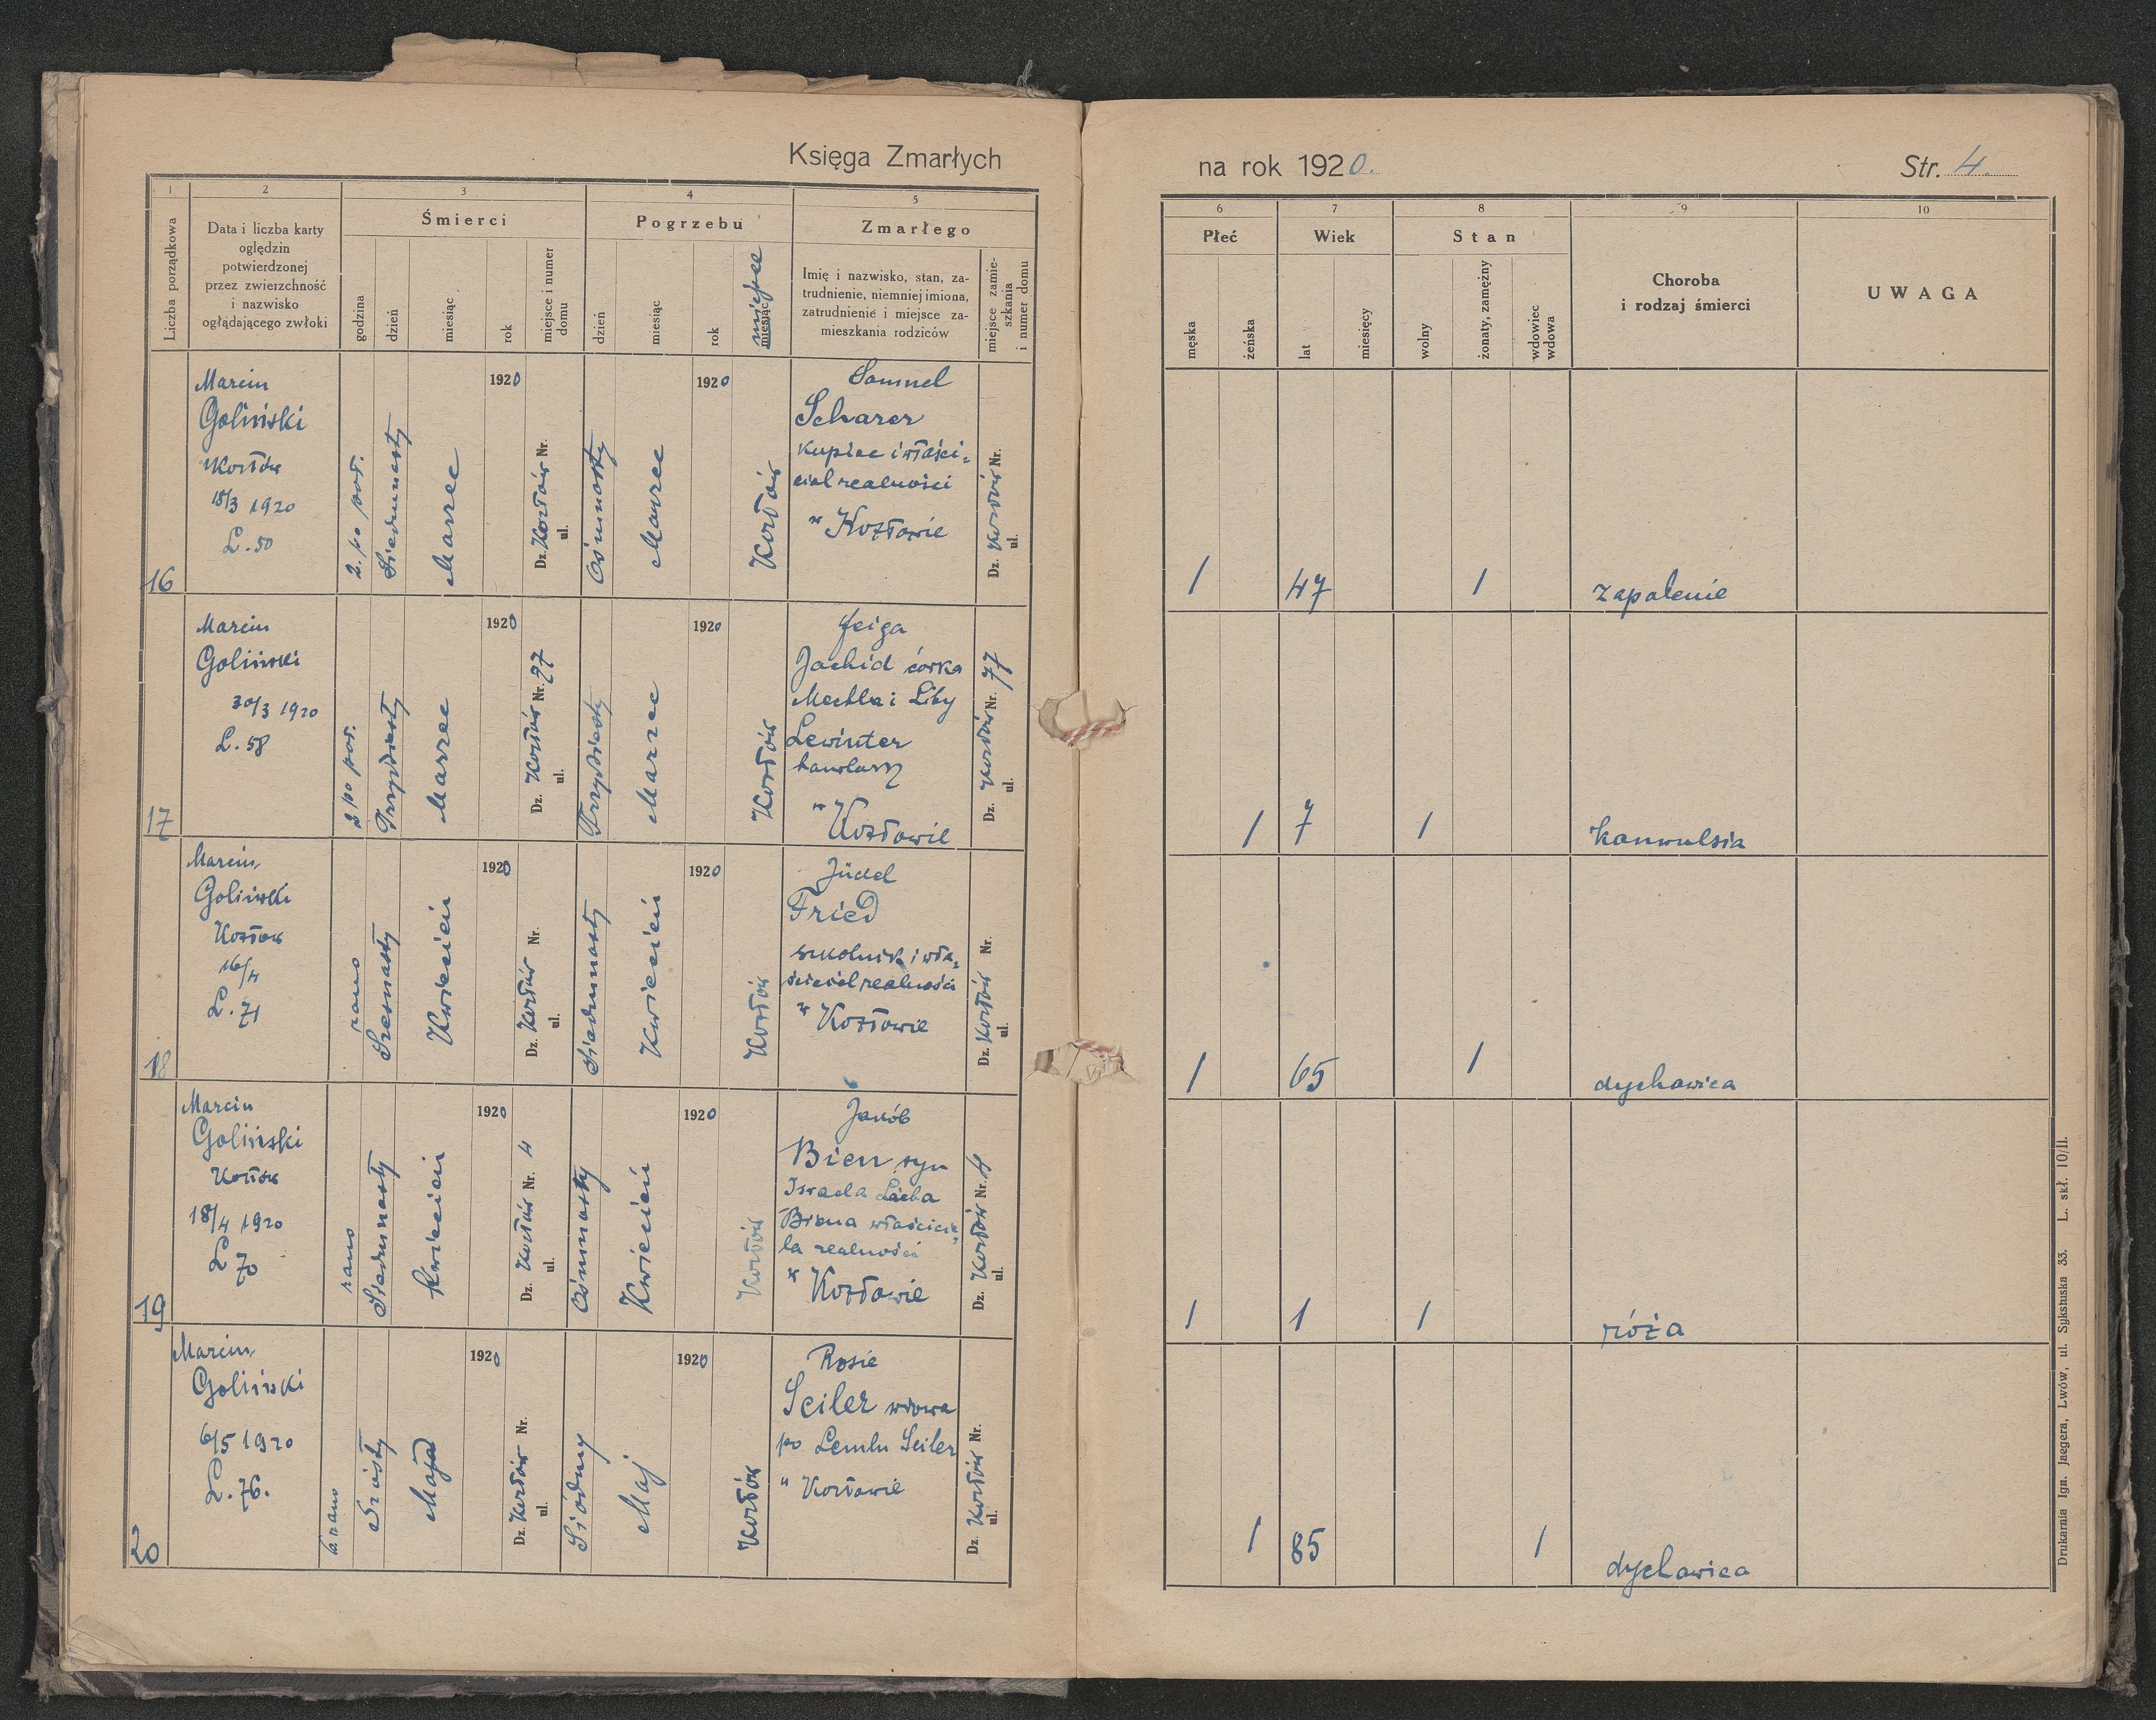 Księga Zmarłych
na rok 1920.
Str. 4.
1
2
3
4
5
6
7
8
9
10
Liczba porządkowa
Data i liczba karty
oględzin
potwierdzonej
przez zwierzchność
i nazwisko
oglądającego zwłoki
Śmierci
godzina
dzień
miesiąc
rok
miejsce i numer
domu
Pogrzebu
dzień
miesiąc
rok
miesiąc
miejsce
Zmarłego
Imię i nazwisko, stan, za-
trudnienie, niemniej imiona,
zatrudnienie i miejsce za-
mieszkania rodziców
miejsce zamie-
szkania
i numer domu
Płeć
męska
żeńska
Wiek
lat
miesięcy
Stan
wolny
żonaty, zamężny
wdowiec
wdowa
Choroba
i rodzaj śmierci
UWAGA
16
Marcin
Goliński
Kozłów
18/3 1920
L. 50
2. po poł.
Siedmnasty
Marzec
1920
Dz. Kozłów Nr.
ul.
Ośmnasty
Marzec
1920
Kozłów
Samuel
Scharer
kupiec i właści-
ciel realności
w Kozłowie
Dz. Kozłów Nr.
ul.
1
47
1
zapalenie
17
Marcin
Goliński
30/3 1920
L. 58
2 po poł.
Trzydziesty
Marzec
1920
Dz. Kozłów Nr. 77
ul.
Trzydziesty
Marzec
1920
Kozłów
Feiga
Jachid córka
Mechla i Liby
Lewinter
handlarz
w Kozłowie
Dz. Kozłów Nr. 77
ul.
1
7
1
konwulsia
18
Marcin
Goliński
Kozłów
16/4
L. 71
rano
Szesnasty
Kwiecień
1920
Dz. Kozłów Nr.
ul.
Siedmnasty
Kwiecień
1920
Kozłów
Jüdel
Fried
szkolnik i wła-
ściciel realności
w Kozłowie
Dz. Kozłów Nr.
ul.
1
65
1
dychawica
19
Marcin
Goliński
Kozłów
18/4 1920
L 70
rano
Siedmnasty
Kwiecień
1920
Dz. Kozłów Nr. 4
ul.
Ośmnasty
Kwiecień
1920
Kozłów
Jakób
Bien syn
Israela Leiba
Biena właścicie-
la realności
w Kozłowie
Dz. Kozłów Nr. 4
ul.
1
1
1
róża
20
Marcin
Goliński
6/5 1920
L. 76.
6. rano
Szósty
Maja
1920
Dz. Kozłów Nr.
ul.
Siódmy
Maj
1920
Kozłów
Rosie
Seiler wdowa
po Lemlu Seiler
w Kozłowie
Dz. Kozłów Nr.
ul.
1
85
1
dychawica
Drukarnia Ign. Jaegera, Lwów, ul. Sykstuska 33. L. skł. 10/II.